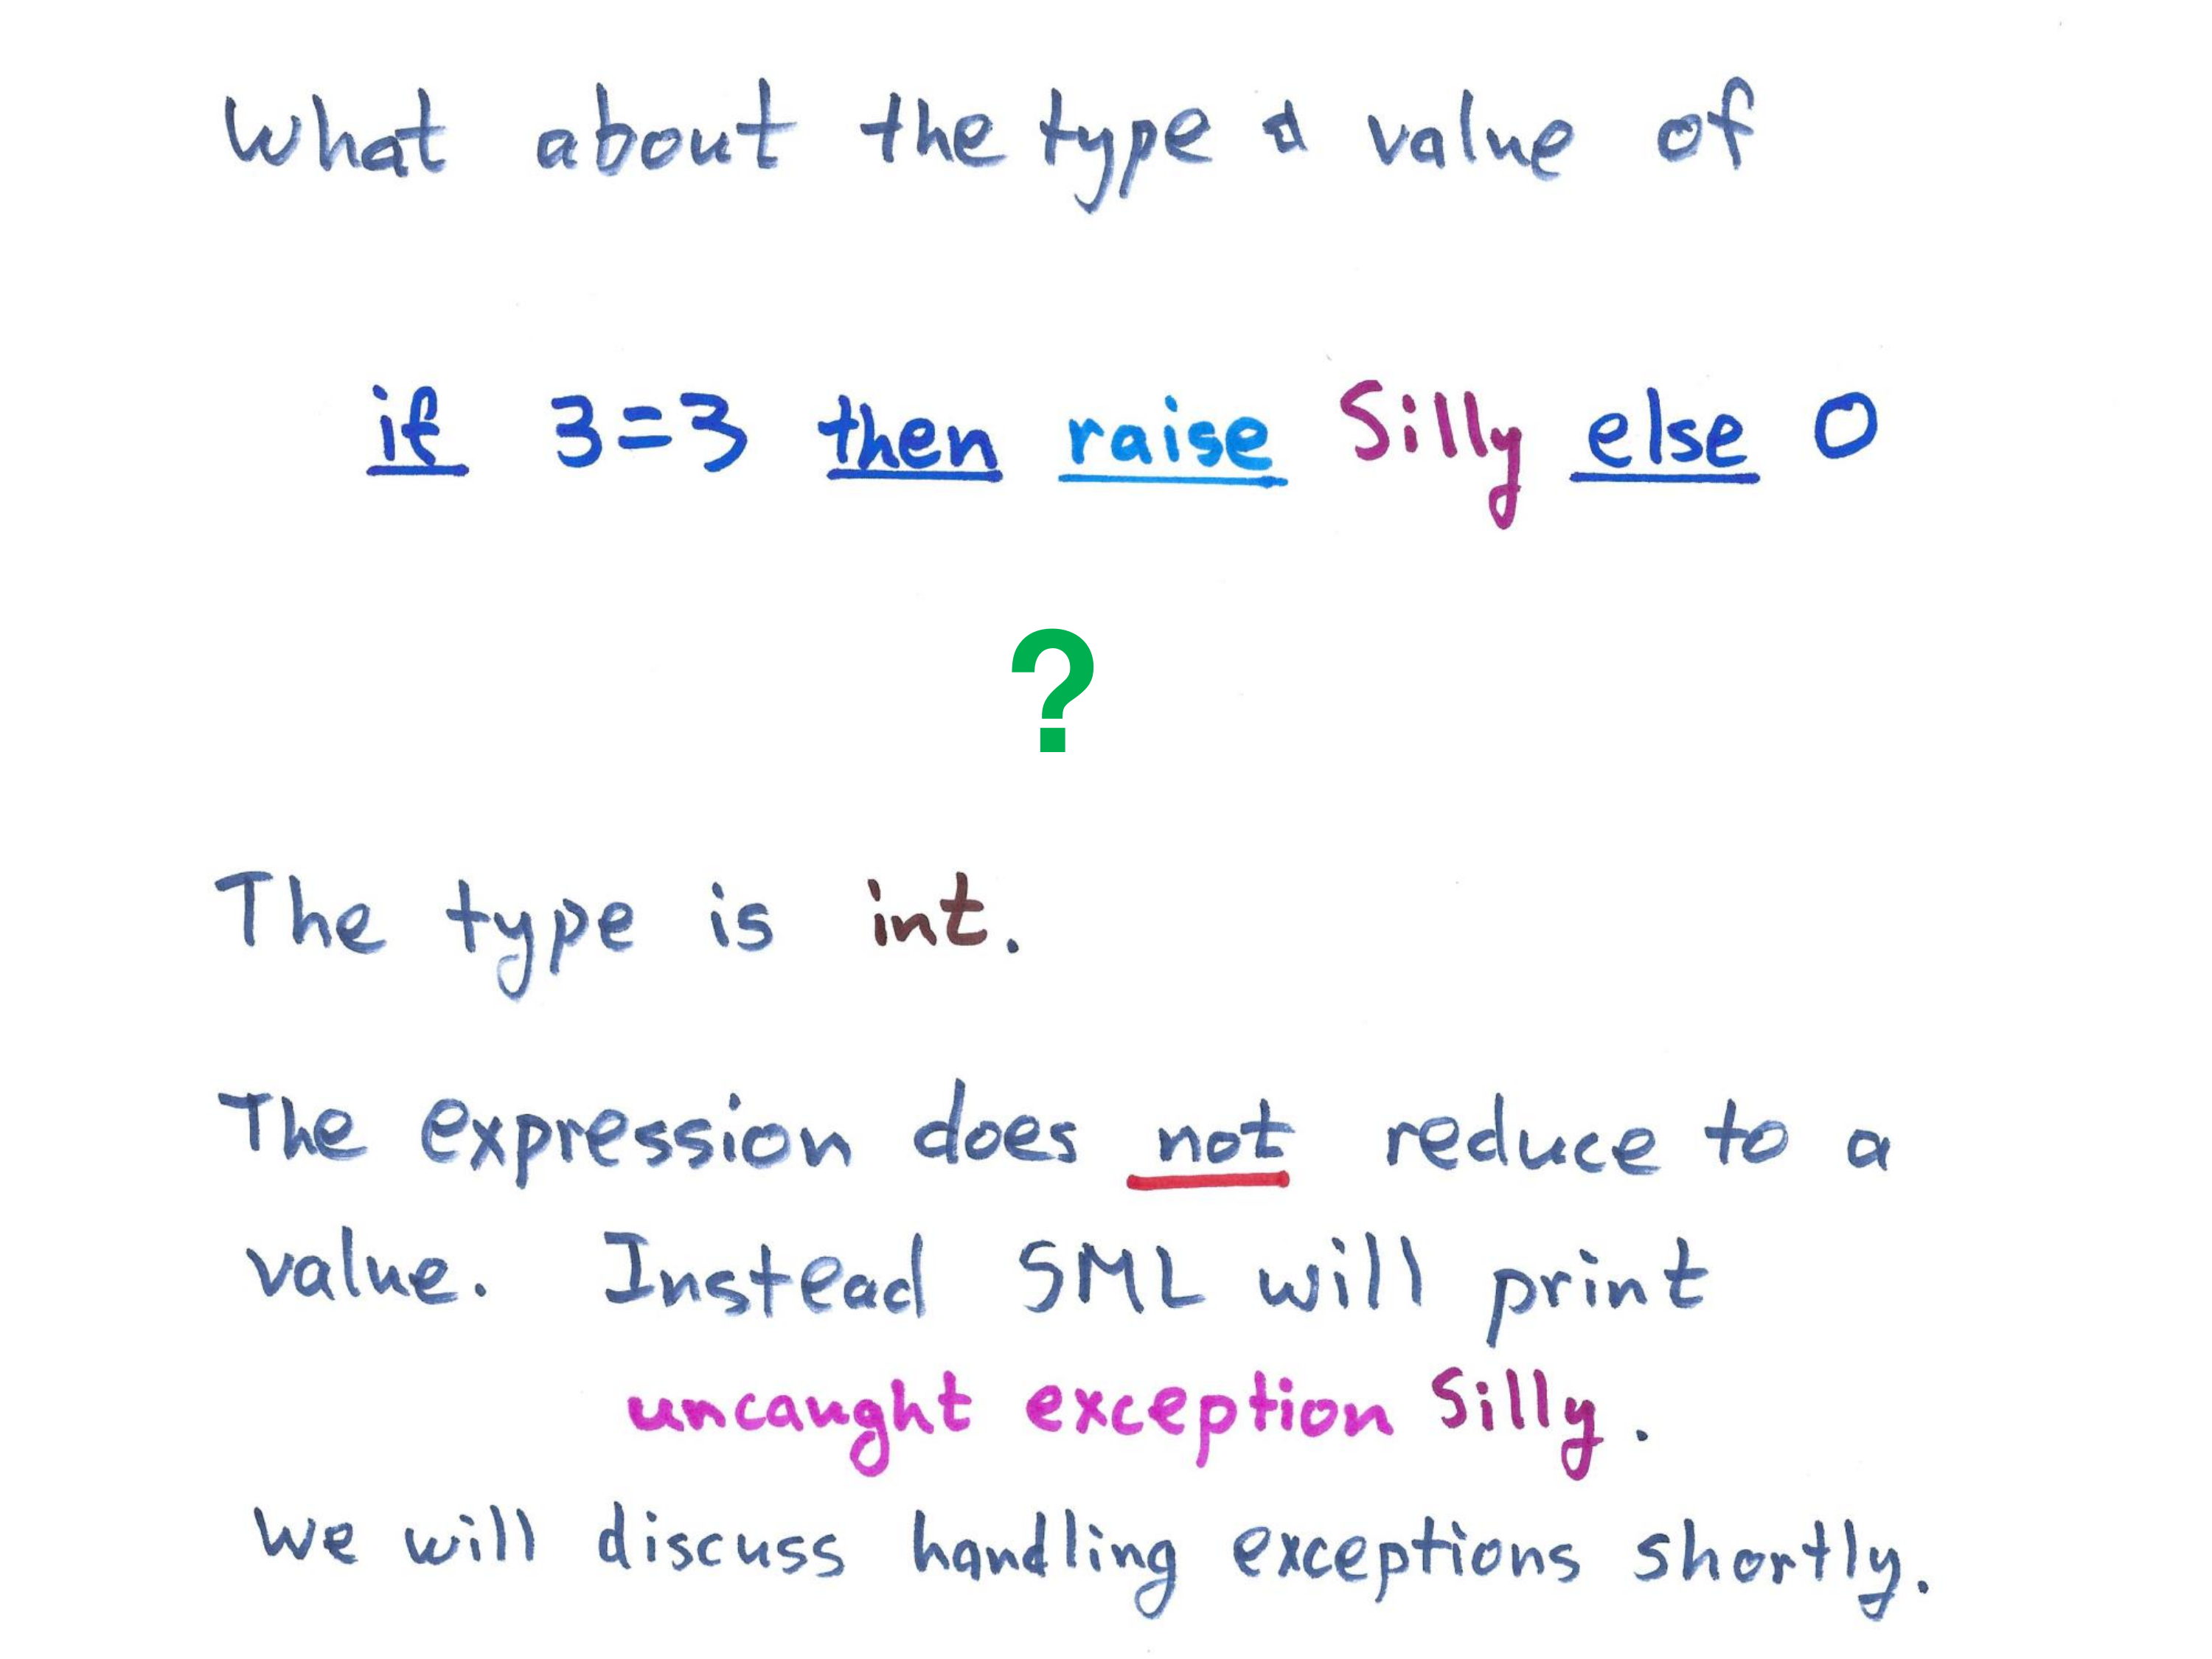 What about the type & value of
if 3=3 then raise Silly else 0
?
The type is int.
The expression does not reduce to a
value. Instead SML will print
uncaught exception Silly.
We will discuss handling exceptions shortly.